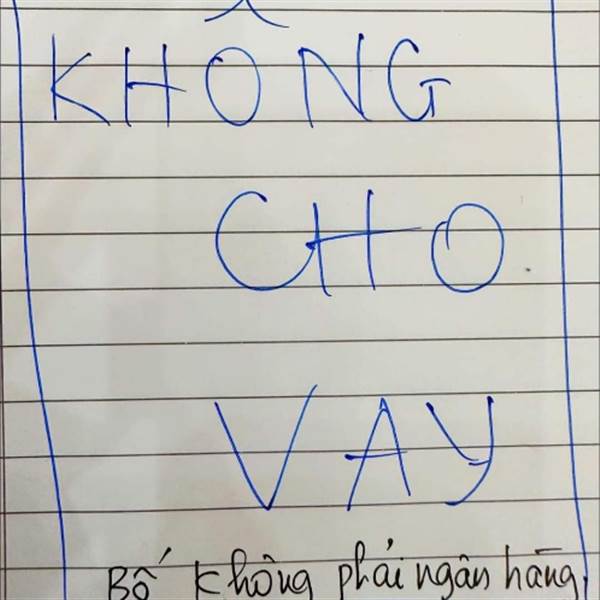 KHÔNG
CHO
VAY
Bố không phải ngân hàng.